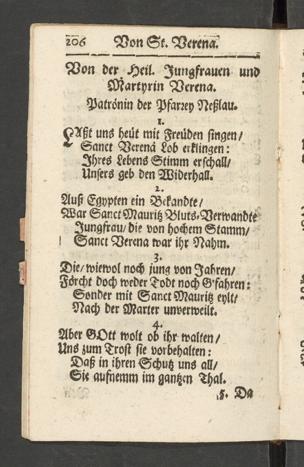 206 Von St. Verena.
Von der Heil. Jungfrauen und
Martyrin Verena.
Patrónin der Pfarrey Neßlau.
1.
LAßt uns heüt mit Freüden singen/
Sanct Verená Lob erklingen:
Ihres Lebens Stimm erschall/
Unsers geb den Widerhall.
2.
Auß Egypten ein Bekandte/
War Sanct Mauritz Bluts-Verwandte
Jungfrau/ die von hochem Stamm/
Sanct Verena war ihr Nahm.
3.
Die/ wiewol noch jung von Jahren/
Förcht doch weder Todt noch Gfahren:
Sonder mit Sanct Mauritz eylt/
Nach der Marter unverweilt.
4.
Aber GOtt wolt ob ihr walten/
Uns zum Trost sie vorbehalten:
Daß in ihren Schutz uns all/
Sie aufnemm im gantzen Thal.
5. Da